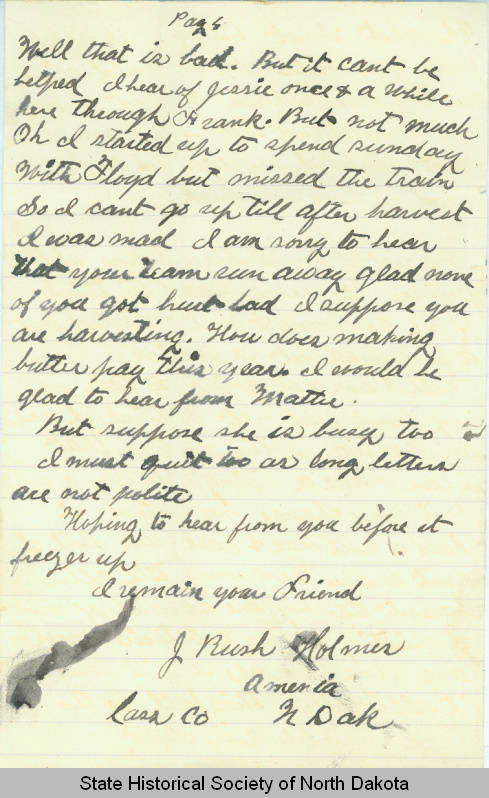 Page
Well that is bad. But it cant be
helped I hear of Jessie once & a while
here through Frank. But not much
Oh I started up to spend sunday
With Floyd but missed the train
So I cant go up till after harvest
I was mad I am sorry to hear
that your team run away glad none
of you got hurt bad I suppose you
are harvesting. How does making
butter pay this year. I would be
glad to hear from Mattie.
But suppose she is busy too
I must quit too as long letters
are not polite
Hoping to hear from you before it
freezes up
I remain your Friend
J Rush Holmes
Amenia
Cass Co N Dak
State Historical Society of North Dakota